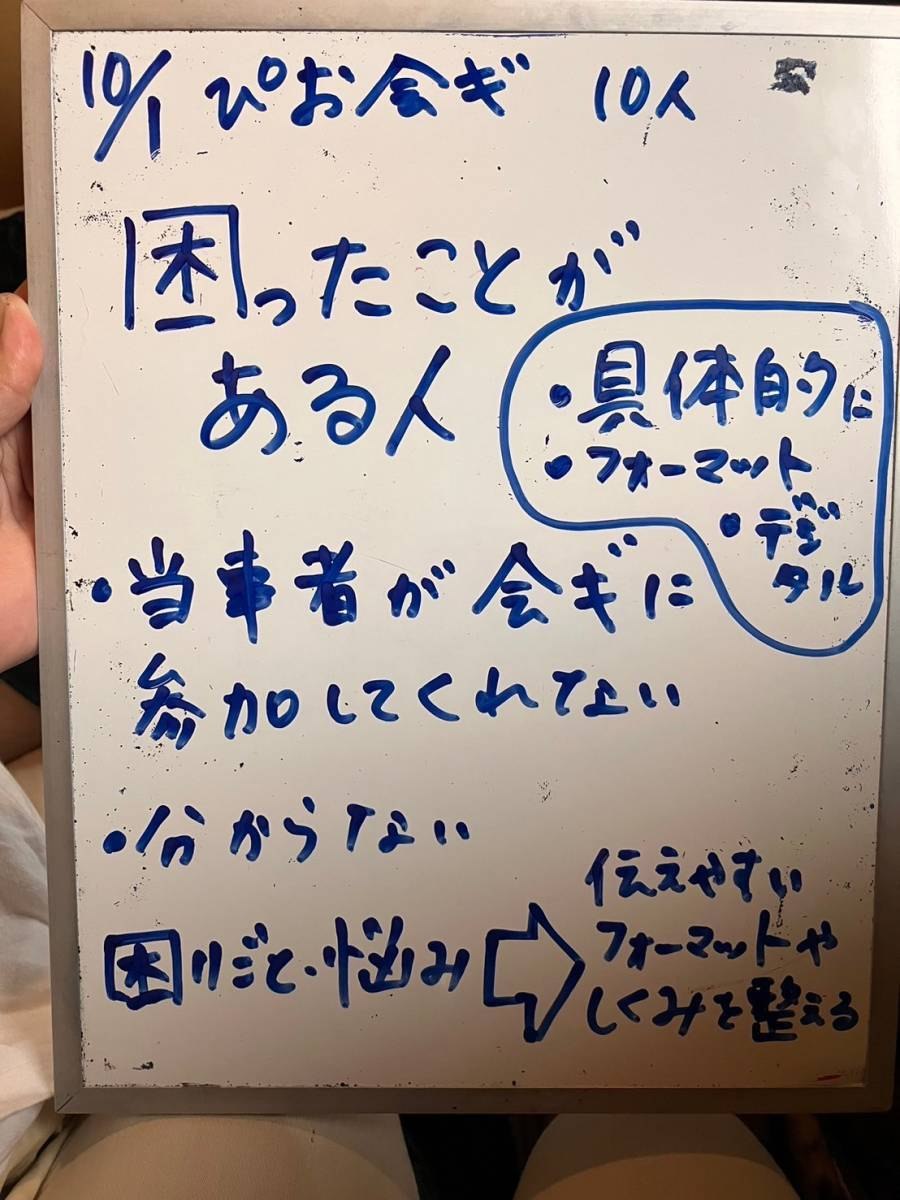 10/1 ぴお会ギ 10人
困ったことが
ある人
・具体的に
・フォーマット
・デジ
タル
・当事者が会ギに
参加してくれない
・分からない
困りごと・悩み
⇨
伝えやすい
フォーマットや
しくみを整える